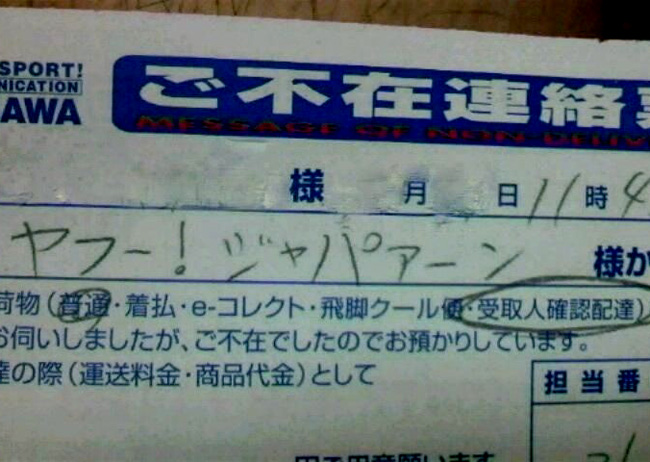 SPORT!
NICATION
AWA
ご不在連絡票
MESSAGE OF NON-DELIV
様 月 日 11時4
ヤフー!ジャパァーン 様か
荷物(普通・着払・e-コレクト・飛脚クール便・受取人確認配達)
お伺いしましたが、ご不在でしたのでお預かりしています。
達の際(運送料金・商品代金)として
担当番
円ご用意願います